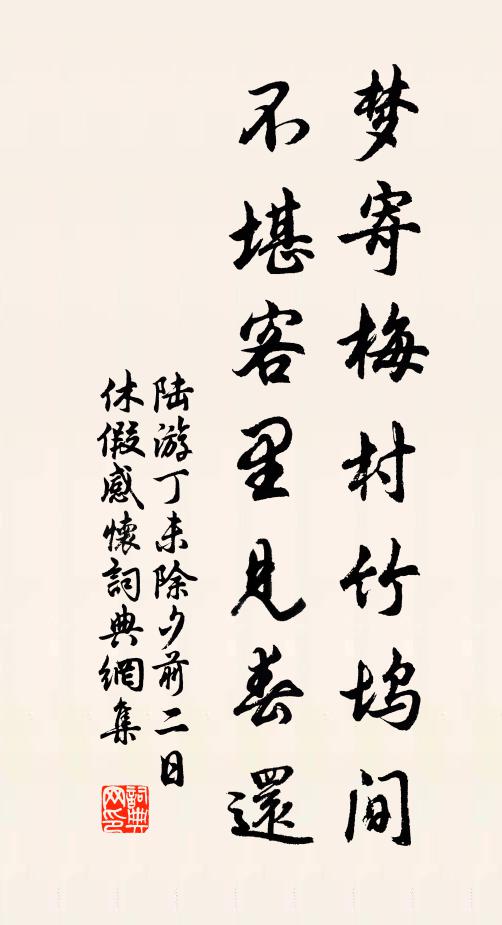 梦寄梅村竹坞间
不堪客里见春還
陆游丁未除夕前二日
休假感懷詞典網集
詞典
网印